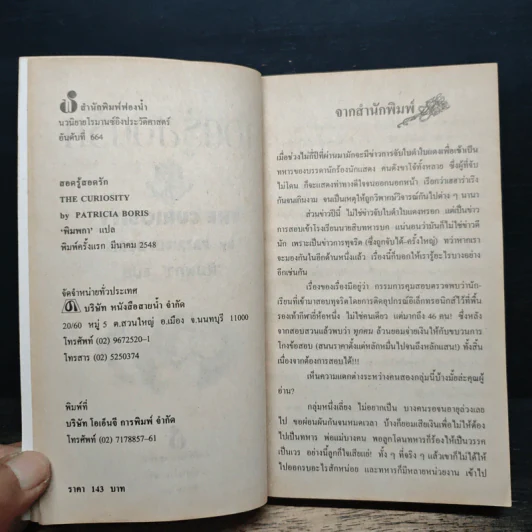 สำนักพิมพ์ฟองน้ำ
นวนิยายโรมานซ์อิงประวัติศาสตร์
อันดับที่ 664
สอดรู้สอดรัก
THE CURIOSITY
by PATRICIA BORIS
'พิมพกา' แปล
พิมพ์ครั้งแรก มีนาคม 2548
จัดจำหน่ายทั่วประเทศ
บริษัท หนังสือสายน้ำ จำกัด
20/60 หมู่ 5 ต.สวนใหญ่ อ.เมือง จ.นนทบุรี 11000
โทรศัพท์ (02) 9672520-1
โทรสาร (02) 5250374
พิมพ์ที่
บริษัท โอเอ็นจี การพิมพ์ จำกัด
โทรศัพท์ (02) 7178857-61
ราคา 143 บาท
จากสำนักพิมพ์
เมื่อช่วงไม่กี่ปีที่ผ่านมามักจะมีข่าวการจับใบดำใบแดงเพื่อเข้าเป็น
ทหารของบรรดานักร้องนักแสดง คนดังขาโจ๋ทั้งหลาย ซึ่งผู้ที่จับ
ไม่โดน ก็จะแสดงท่าทางดีใจจนออกนอกหน้า เรียกว่าเฮฮาร่าเริง
กันจนเกินงาม จนเป็นเหตุให้ถูกวิพากษ์วิจารณ์กันไปต่าง ๆ นานา
ส่วนข่าวปีนี้ ไม่ใช่ข่าวจับใบดำใบแดงหรอก แต่เป็นข่าว
การสอบเข้าโรงเรียนนายสิบทหารบก แน่นอนว่ามันก็ไม่ใช่ข่าวดี
นัก เพราะเป็นข่าวการทุจริต (ซึ่งถูกจับได้-ครั้งใหญ่) ทว่าหากเรา
จะมองกันในอีกด้านหนึ่งแล้ว เรื่องนี้ก็บอกให้เรารู้อะไรบางอย่าง
อีกเช่นกัน
เรื่องของเรื่องมีอยู่ว่า กรรมการคุมสอบตรวจพบว่านัก-
เรียนที่เข้ามาสอบทุจริตโดยการติดอุปกรณ์อิเล็กทรอนิกส์ไว้ที่พื้น
รองเท้ากีฬายี่ห้อหนึ่ง ไม่ใช่คนเดียว แต่มากถึง 46 คน! ซึ่งหลัง
จากสอบสวนแล้วพบว่า ทุกคน ล้วนยอมจ่ายเงินให้กับขบวนการ
โกงข้อสอบ (สนนราคาตั้งแต่หลักหมื่นไปจนถึงหลักแสน!) ทั้งสิ้น
เนื่องจากต้องการสอบได้!!!
เห็นความแตกต่างระหว่างคนสองกลุ่มนี้บ้างมั้ยล่ะคุณผู้
อ่าน?
กลุ่มหนึ่งเลี่ยง ไม่อยากเป็น บางคนรอจนอายุล่วงเลย
ไป ขอผ่อนผันกันจนหมดเวลา บ้างก็ยอมเสียเงินเพื่อไม่ให้ต้อง
ไปเป็นทหาร พ่อแม่บางคน พาลูกโดนทหารก็ร้องไห้เป็นวรรค
เป็นเวร อย่างนี้ลูกก็ใจเสียแย่! ทั้ง ๆ ที่จริง ๆ แล้วเขาก็ไม่ได้ให้
ไปออกรบอะไรสักหน่อย และทหารก็มีหลายหน่วยงาน เข้าไป